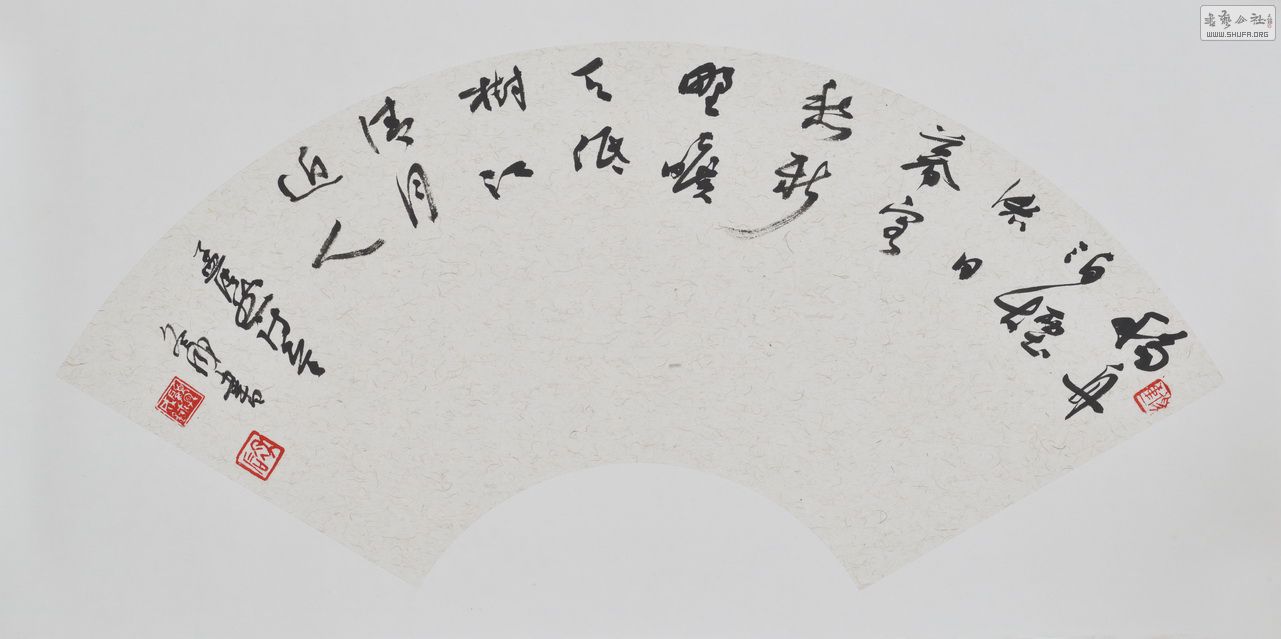 移舟
泊煙
渚日
暮客
愁新
野曠
天低
樹江
清月
近人
書
书艺公社
WWW.SHUFA.ORG